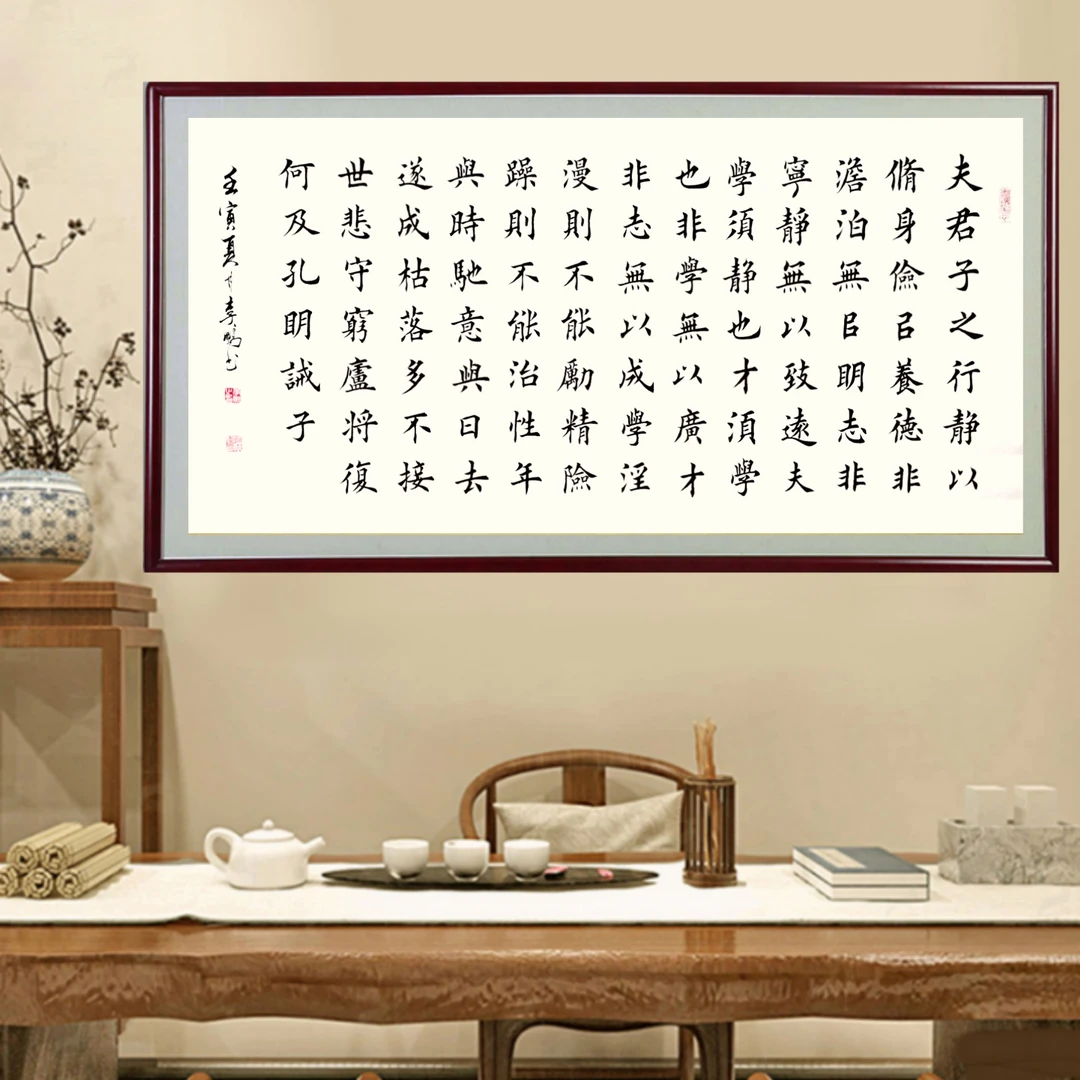 夫君子之行静以
脩身儉㠯養德非
澹泊無㠯眀志非
寧靜無以致遠夫
學須静也才須學
也非學無以廣才
非志無以成學淫
漫則不能勵精險
躁則不能治性年
與時馳意與日去
遂成枯落多不接
世悲守窮廬将復
何及孔眀誡子
壬寅夏李